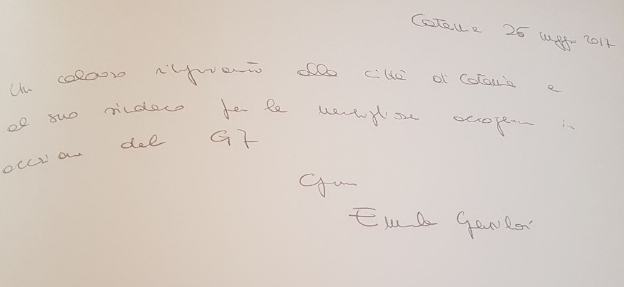 Catania 25 maggio 2017
Un caloroso ringraziamento alla città di Catania e
al suo sindaco per la meravigliosa accoglienza in
occasione del G7